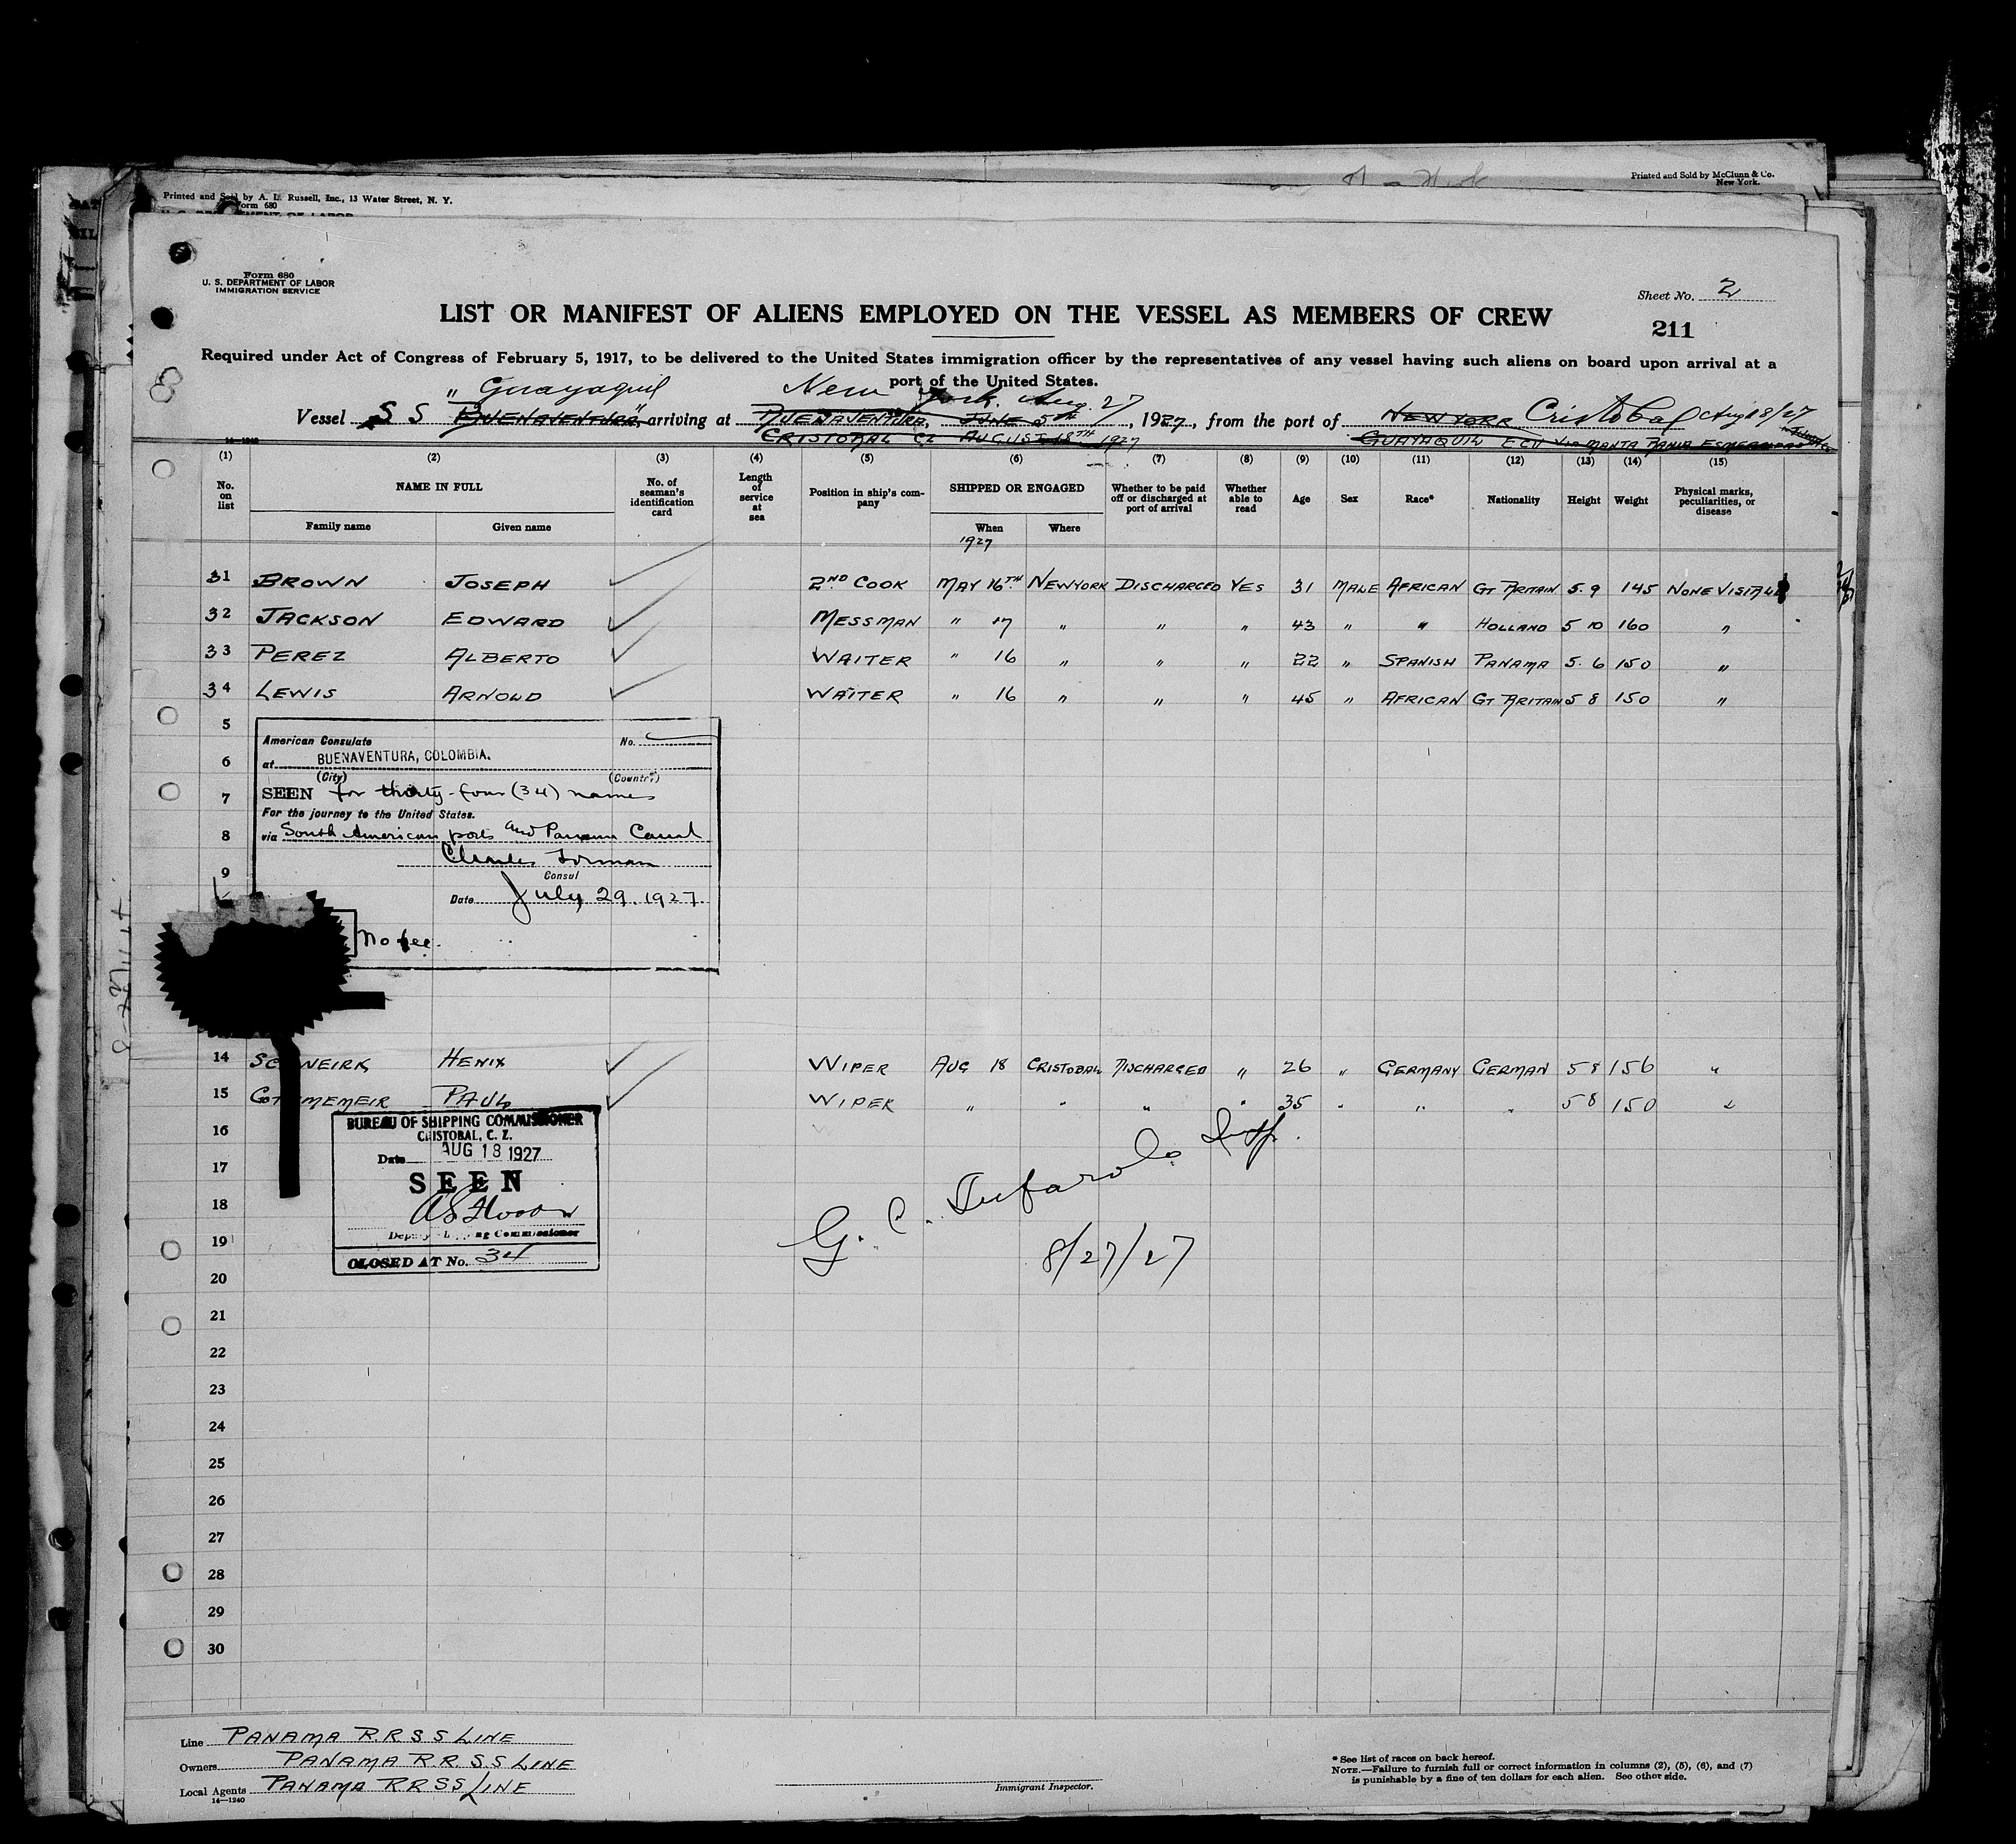 Printed and Sold by A. L. Russell, Inc., 13 Water Street, N. Y.
Form 680
Printed and Sold by McClunn & Co.
New York.
Form 680
U. S. DEPARTMENT OF LABOR
IMMIGRATION SERVICE
Sheet No. 2
LIST OR MANIFEST OF ALIENS EMPLOYED ON THE VESSEL AS MEMBERS OF CREW
211
Required under Act of Congress of February 5, 1917, to be delivered to the United States immigration officer by the representatives of any vessel having such aliens on board upon arrival at a
port of the United States.
" Guayaquil New York, Aug. 27
Vessel S S BUENAVENTURA", arriving at BUENAVENTURA, JUNE 5th, 1927, from the port of NEW YORK Cristobal Aug 18/27
CRISTOBAL CZ AUGUST 18TH 1927 GUAYAQUIL ECU VIA MANTA BAHIA ESMERALDAS
14-1240
(1) (2) (3) (4) (5) (6) (7) (8) (9) (10) (11) (12) (13) (14) (15)
No. on list NAME IN FULL No. of seaman's identification card Length of service at sea Position in ship's company SHIPPED OR ENGAGED Whether to be paid off or discharged at port of arrival Whether able to read Age Sex Race* Nationality Height Weight Physical marks, peculiarities, or disease
Family name Given name When Where
1927
31 BROWN JOSEPH 2ND COOK MAY 16TH NEWYORK DISCHARGED YES 31 MALE AFRICAN GT BRITAIN 5.9 145 NONE VISIBLE
32 JACKSON EDWARD MESSMAN " 17 " " " 43 " " HOLLAND 5 10 160 "
33 PEREZ ALBERTO WAITER " 16 " " " 22 " SPANISH PANAMA 5.6 150 "
34 LEWIS ARNOLD WAITER " 16 " " " 45 " AFRICAN GT BRITAIN 5 8 150 "
5
American Consulate No.
6
at BUENAVENTURA, COLOMBIA.
(City) (Country)
7
SEEN for thirty-four (34) names
For the journey to the United States.
8
via South American ports and Panama Canal
Charles Forman
9
Consul
Date July 29. 1927.
No fee.
14 SC NEIRK HENIX WIPER AUG 18 CRISTOBAL DISCHARGED " 26 " GERMANY GERMAN 5 8 156 "
15 MEMEIR PAUL WIPER " " " " 35 " " " 5 8 150 "
16
BUREAU OF SHIPPING COMMISSIONER
CRISTOBAL, C. Z.
Date AUG 18 1927
17
SEEN
18
Deputy Shipping Commissioner
19
CLOSED AT No. 34
G. C.
8/27/27
20
21
22
23
24
25
26
27
28
29
30
Line PANAMA R.R S S LINE
Owners PANAMA R R. S.S LINE
Local Agents PANAMA R R S S LINE
14-1240
Immigrant Inspector.
* See list of races on back hereof.
NOTE.—Failure to furnish full or correct information in columns (2), (5), (6), and (7)
is punishable by a fine of ten dollars for each alien. See other side.